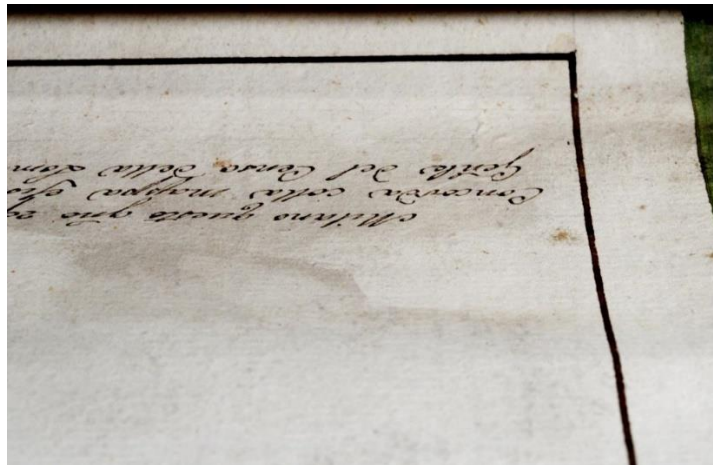 Milano questo gno
Concorda colla mappa
del Censo della Lom